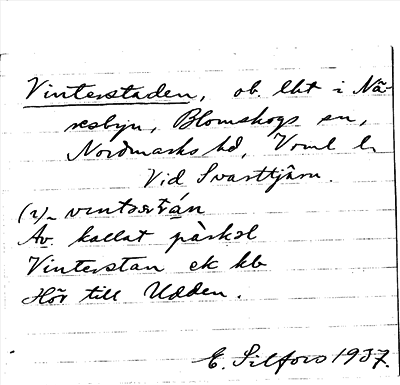 Vinterstaden, ob. lht i Nä-
resbyn, Blomskogs sn,
Nordmarks hd, Vrml l
Vid Svarttjärn.
(i) - vintəstán
Av. kallat på skol
Vinterstan ek kb
Hör till Udden.
E. Silfors 1937.